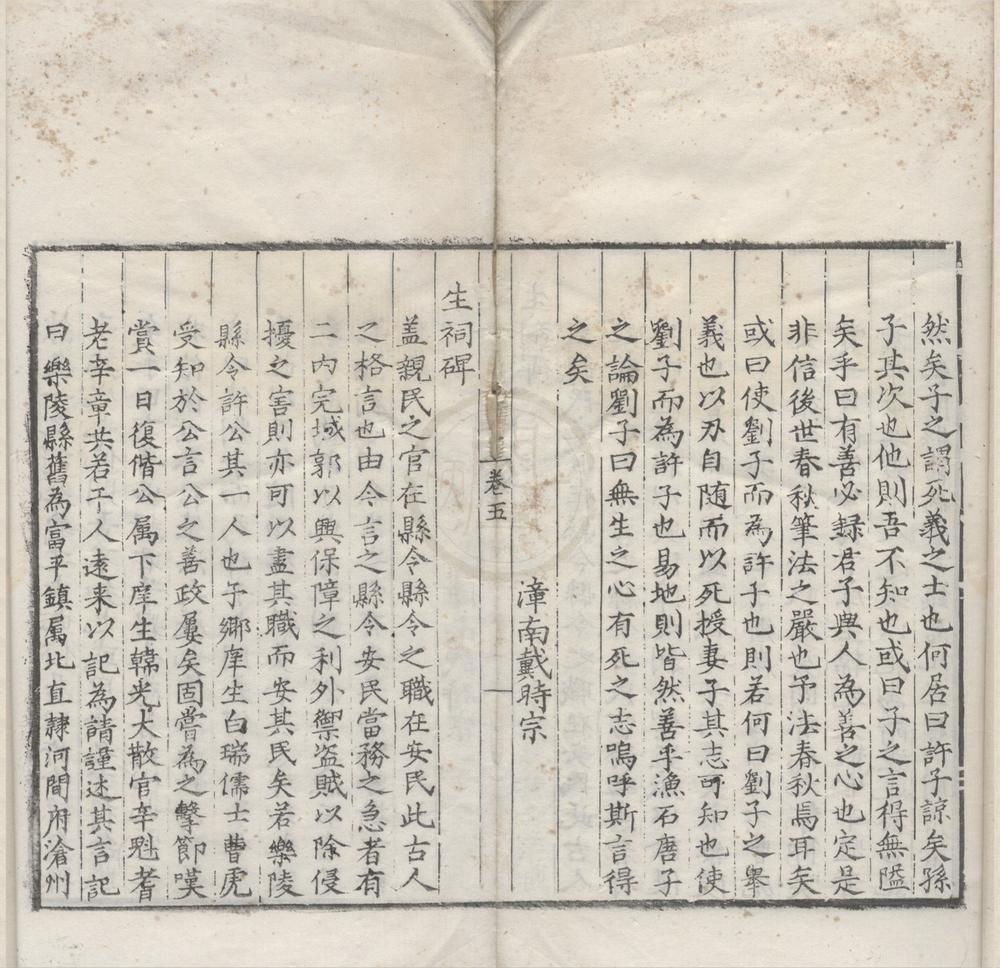 然矣子之謂死義之士也何居曰許子諒矣孫
子其次也他則吾不知也或曰子之言得無隘
矣乎曰有善必録君子與人為善之心也定是
非信後世春秋筆法之嚴也予法春秋焉耳矣
或曰使劉子而為許子也則若何曰劉子之舉
義也以刃自随而以死授妻子其志可知也使
劉子而為許子也易地則皆然善乎漁石唐子
之論劉子曰無生之心有死之志嗚呼斯言得
之矣
漳南戴時宗
卷五
一
生祠碑
盖親民之官在縣令縣令之職在安民此古人
之格言也由今言之縣令安民當務之急者有
二内完城郭以興保障之利外禦盗賊以除侵
擾之害則亦可以盡其職而安其民矣若樂陵
縣令許公其一人也予鄉庠生白瑞儒士曹虎
受知於公言公之善政屢矣固嘗為之擊節嘆
賞一日復偕公属下庠生韓光大散官辛魁耆
老辛章共若干人遠来以記為請謹述其言記
曰樂陵縣舊為富平鎮属北直隷河間府滄州